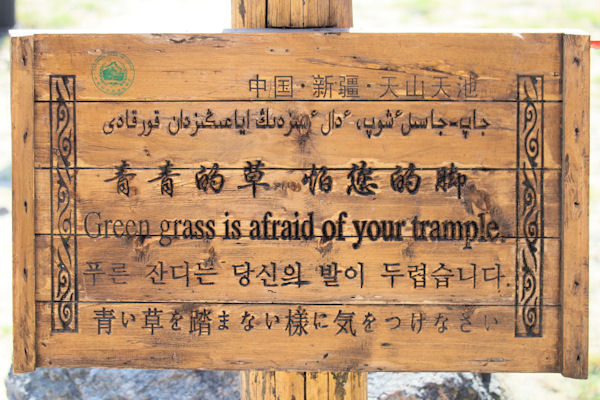 中国·新疆·天山天池
جاپ-جاسىل ءشوپ، ءدال ءسىزدىڭ اياعىڭىزدان قورقادى
青青的草 怕您的脚
Green grass is afraid of your trample.
푸른 잔디는 당신의 발이 두렵습니다.
青い草を踏まない様に気をつけなさい